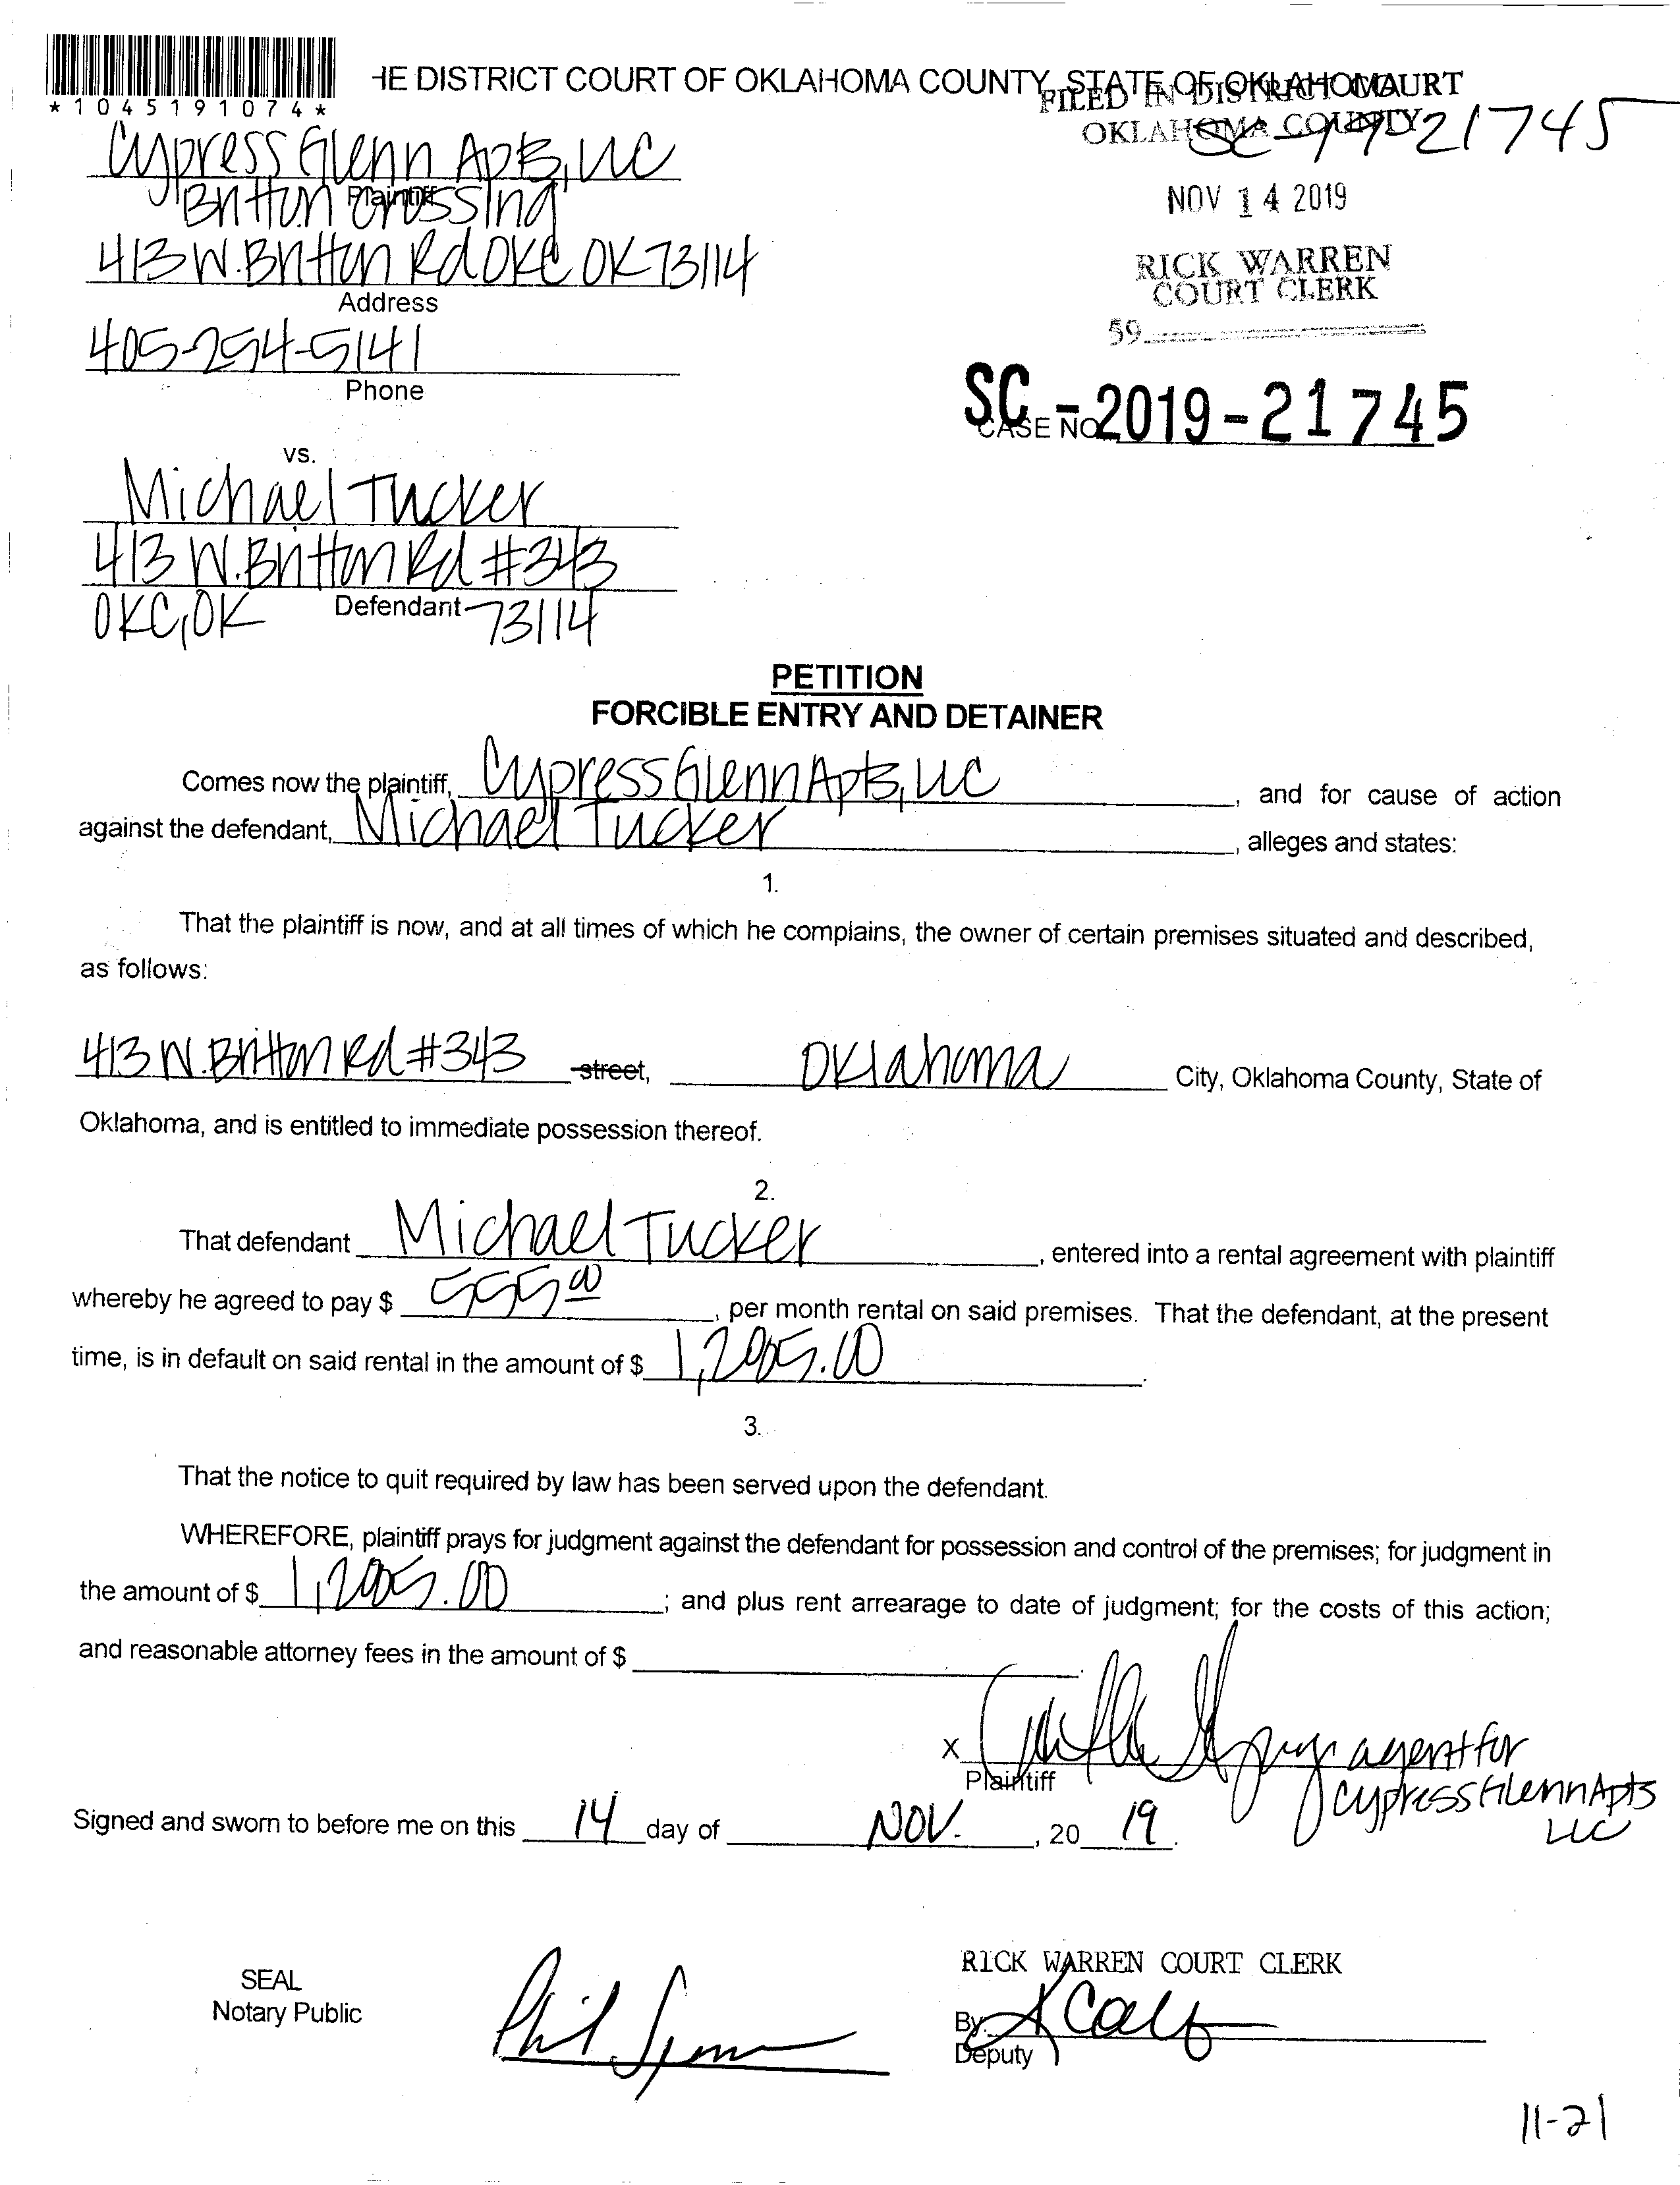 *1045191074*
HE DISTRICT COURT OF OKLAHOMA COUNTY, STATE OF OKLAHOMA
FILED IN DISTRICT COURT
OKLAHOMA COUNTY
SC-19-21745
NOV 14 2019
RICK WARREN
COURT CLERK
59
SC-2019-21745
CASE NO.
Cypress Glenn Apts, LLC
Britton Crossing
Plaintiff
413 W. Britton Rd OKC OK 73114
Address
405-254-5141
Phone
vs.
Michael Tucker
413 W. Britton Rd #343
OKC, OK 73114
Defendant
PETITION
FORCIBLE ENTRY AND DETAINER
Comes now the plaintiff, Cypress Glenn Apts, LLC, and for cause of action
against the defendant, Michael Tucker, alleges and states:
1.
That the plaintiff is now, and at all times of which he complains, the owner of certain premises situated and described,
as follows:
413 W. Britton Rd #343 street, Oklahoma City, Oklahoma County, State of
Oklahoma, and is entitled to immediate possession thereof.
2.
That defendant Michael Tucker, entered into a rental agreement with plaintiff
whereby he agreed to pay $ 555.00, per month rental on said premises. That the defendant, at the present
time, is in default on said rental in the amount of $
3.
That the notice to quit required by law has been served upon the defendant.
WHEREFORE, plaintiff prays for judgment against the defendant for possession and control of the premises; for judgment in
the amount of $ ; and plus rent arrearage to date of judgment; for the costs of this action;
and reasonable attorney fees in the amount of $
X agent for
Plaintiff
Cypress Glenn Apts
LLC
Signed and sworn to before me on this 14 day of Nov., 2019.
SEAL
Notary Public
RICK WARREN COURT CLERK
By
Deputy
11-21